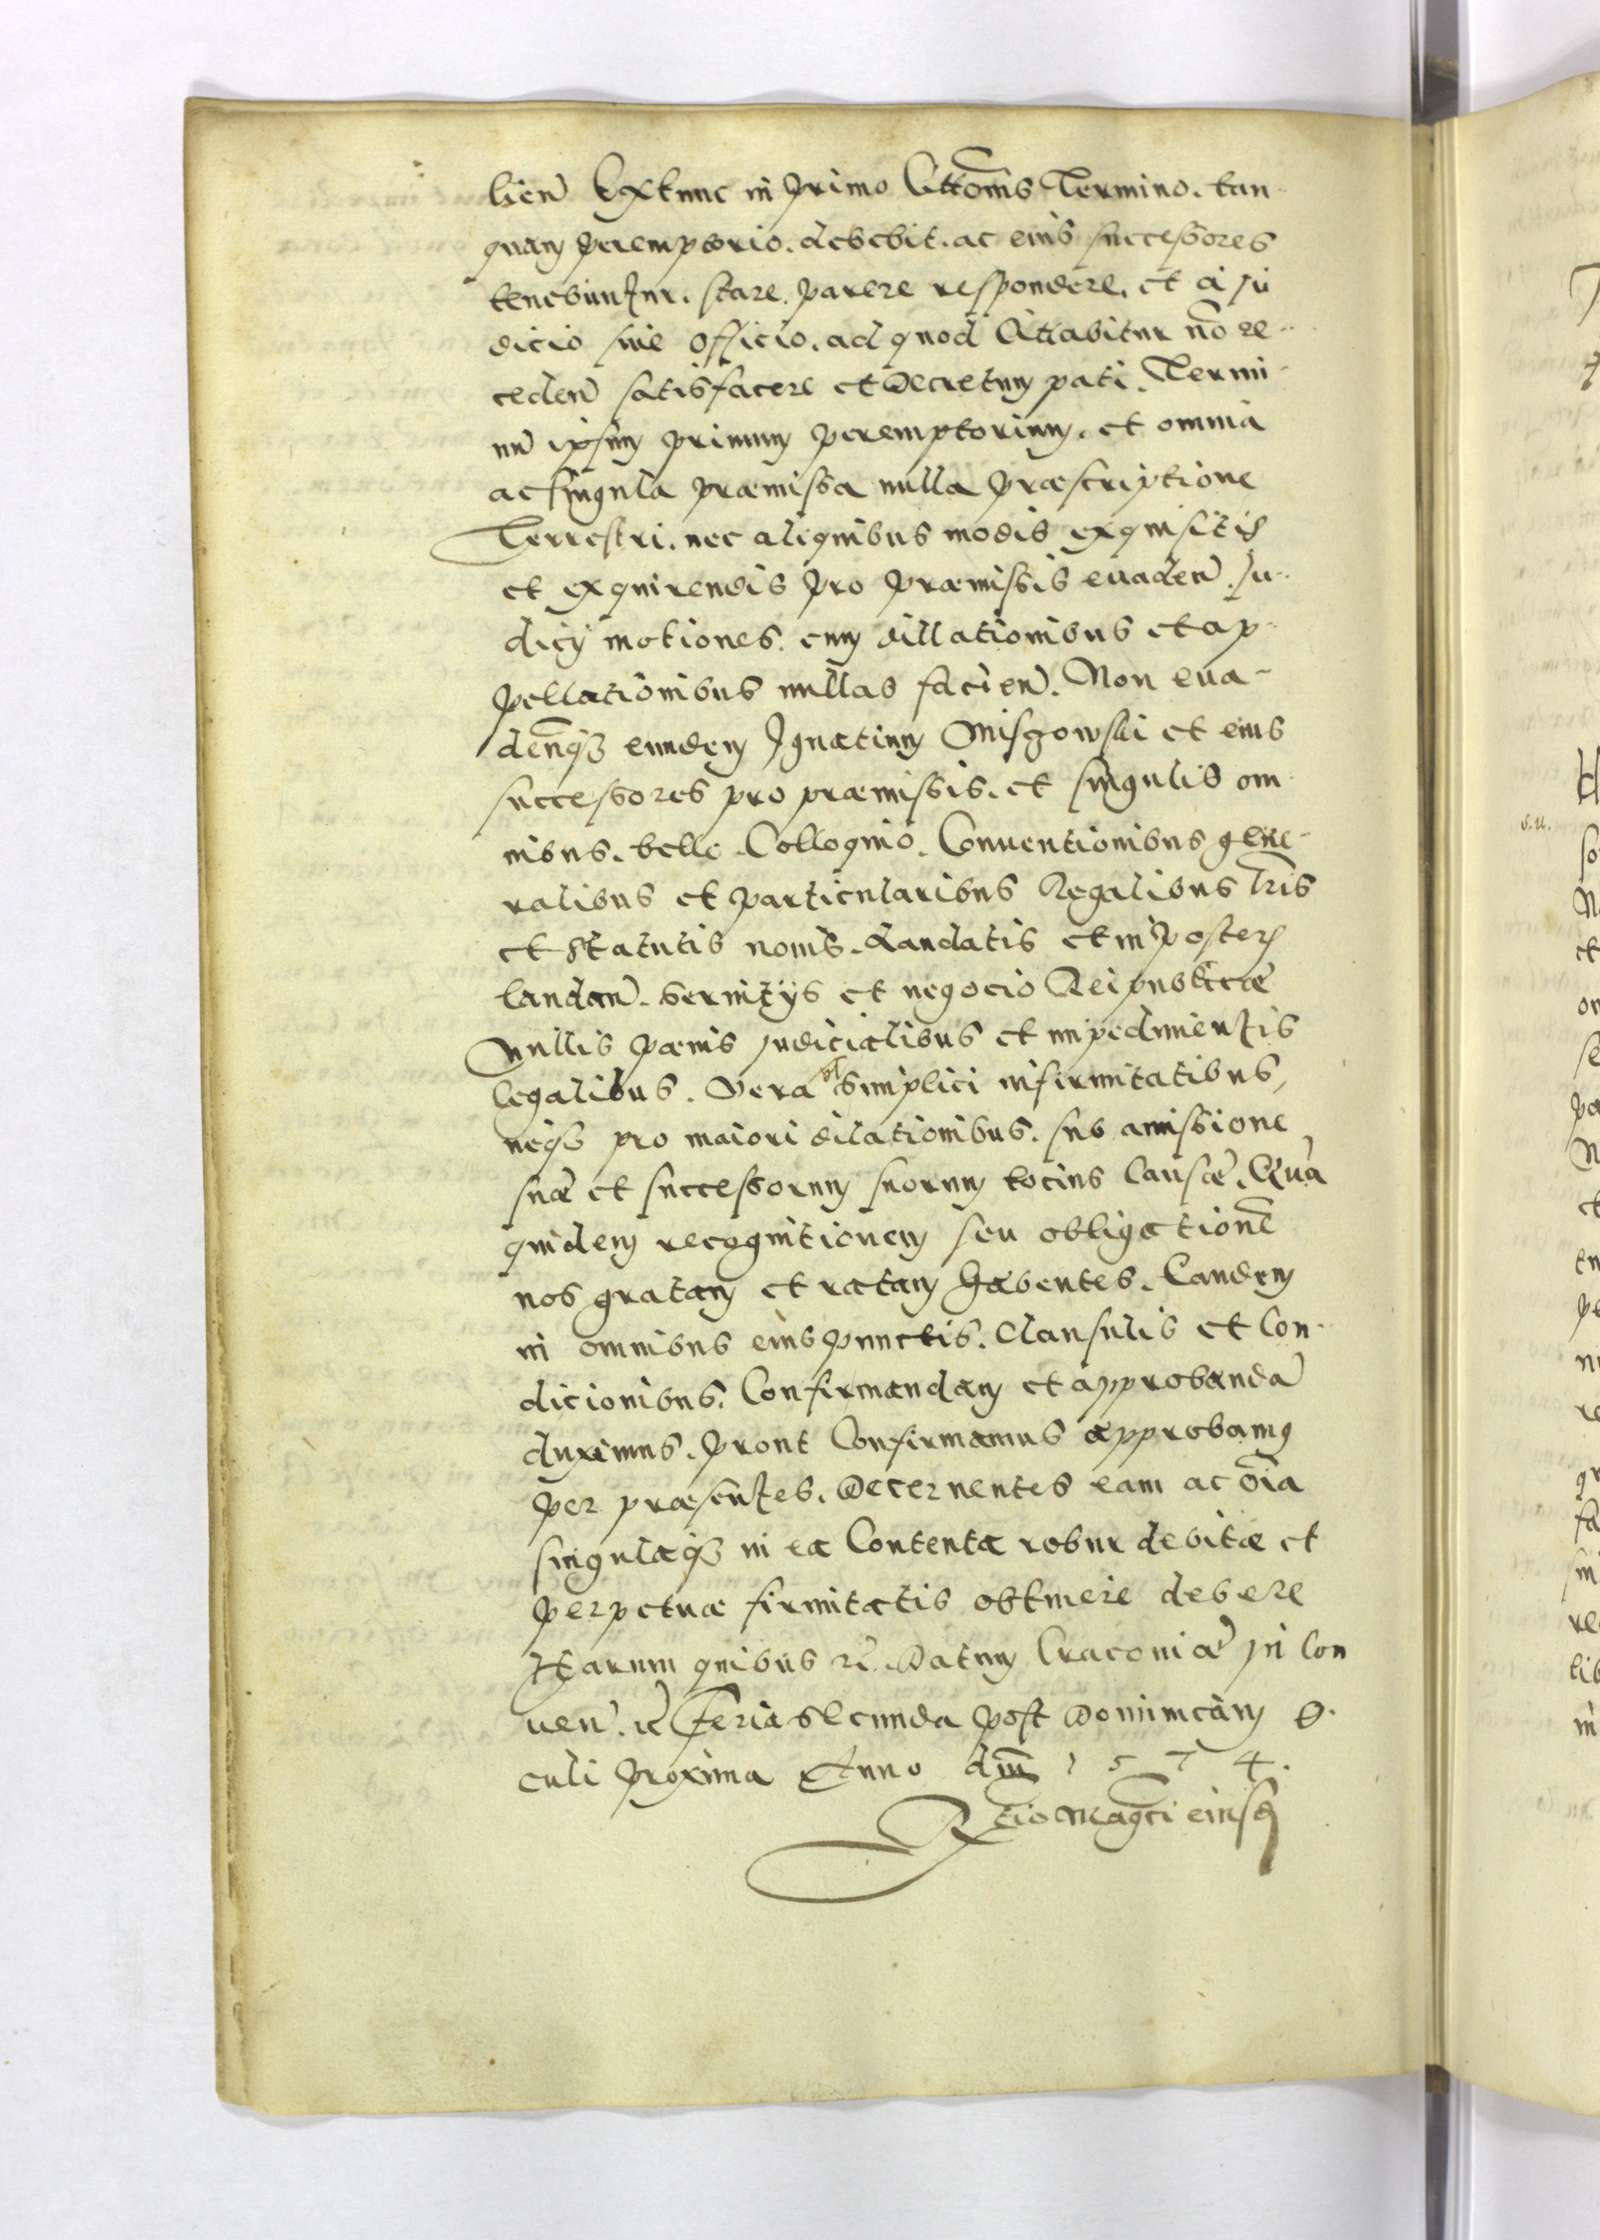 lien̄ Extunc in primo Cittōnis Termino. tan-
quam peremptorio. debebit. ac eius successores
tenebuntur. stare. parere respondere. et a iu
dicio siue officio. ad quod Cittabitur nō re-
ceden̄ satisfacere et Decretum pati. Termi-
nū ipsum primum peremptorium. et omnia
ac singula præmissa nulla præscriptione
Terrestri. nec aliquibus modis exquisitis
et exquirendis pro præmissis euaden̄. Iu-
dicÿ motiones. cum dillationibus et ap-
pellationibus nullas facien̄. Non eua-
den̄q3 eundem Ignatium Misgowski et eius
successores pro præmissis. et singulis om
nibus. bello. Colloquio. Conuentionibus gene-
ralibus et particularibus Regalibus Lr̄is
et Statutis nouis. Laudatis et in poster̄
laudan̄. Seruitÿs et negocio Reipublicæ
Nullis pœnis Judicialibus et impedimentis
legalibus. Vera vl Simplici infirmitatibus,
neq3 pro maiori dilationibus. sub amissione
suæ et successorum suorum tocius Causæ. Quā
quidem recognitionem seu obligationē
nos gratam et ratam habentes. Eandem
in omnibus eius punctis. Clausulis et Con-
dicionibus. Confirmandam et approbandā
duximus. prout Confirmamus approbamq
per præsentes. Decernentes eam ac oīa
singulaq3 in ea Contenta robur debitæ et
perpetuæ firmitatis obtinere debere
Harum quibus rē. Datum Cracouiæ In Con
uen̄. rē Feria Secunda post Dominicam O.
culi proxima Anno dnī 1574.
Rtio Magci eiusd̄